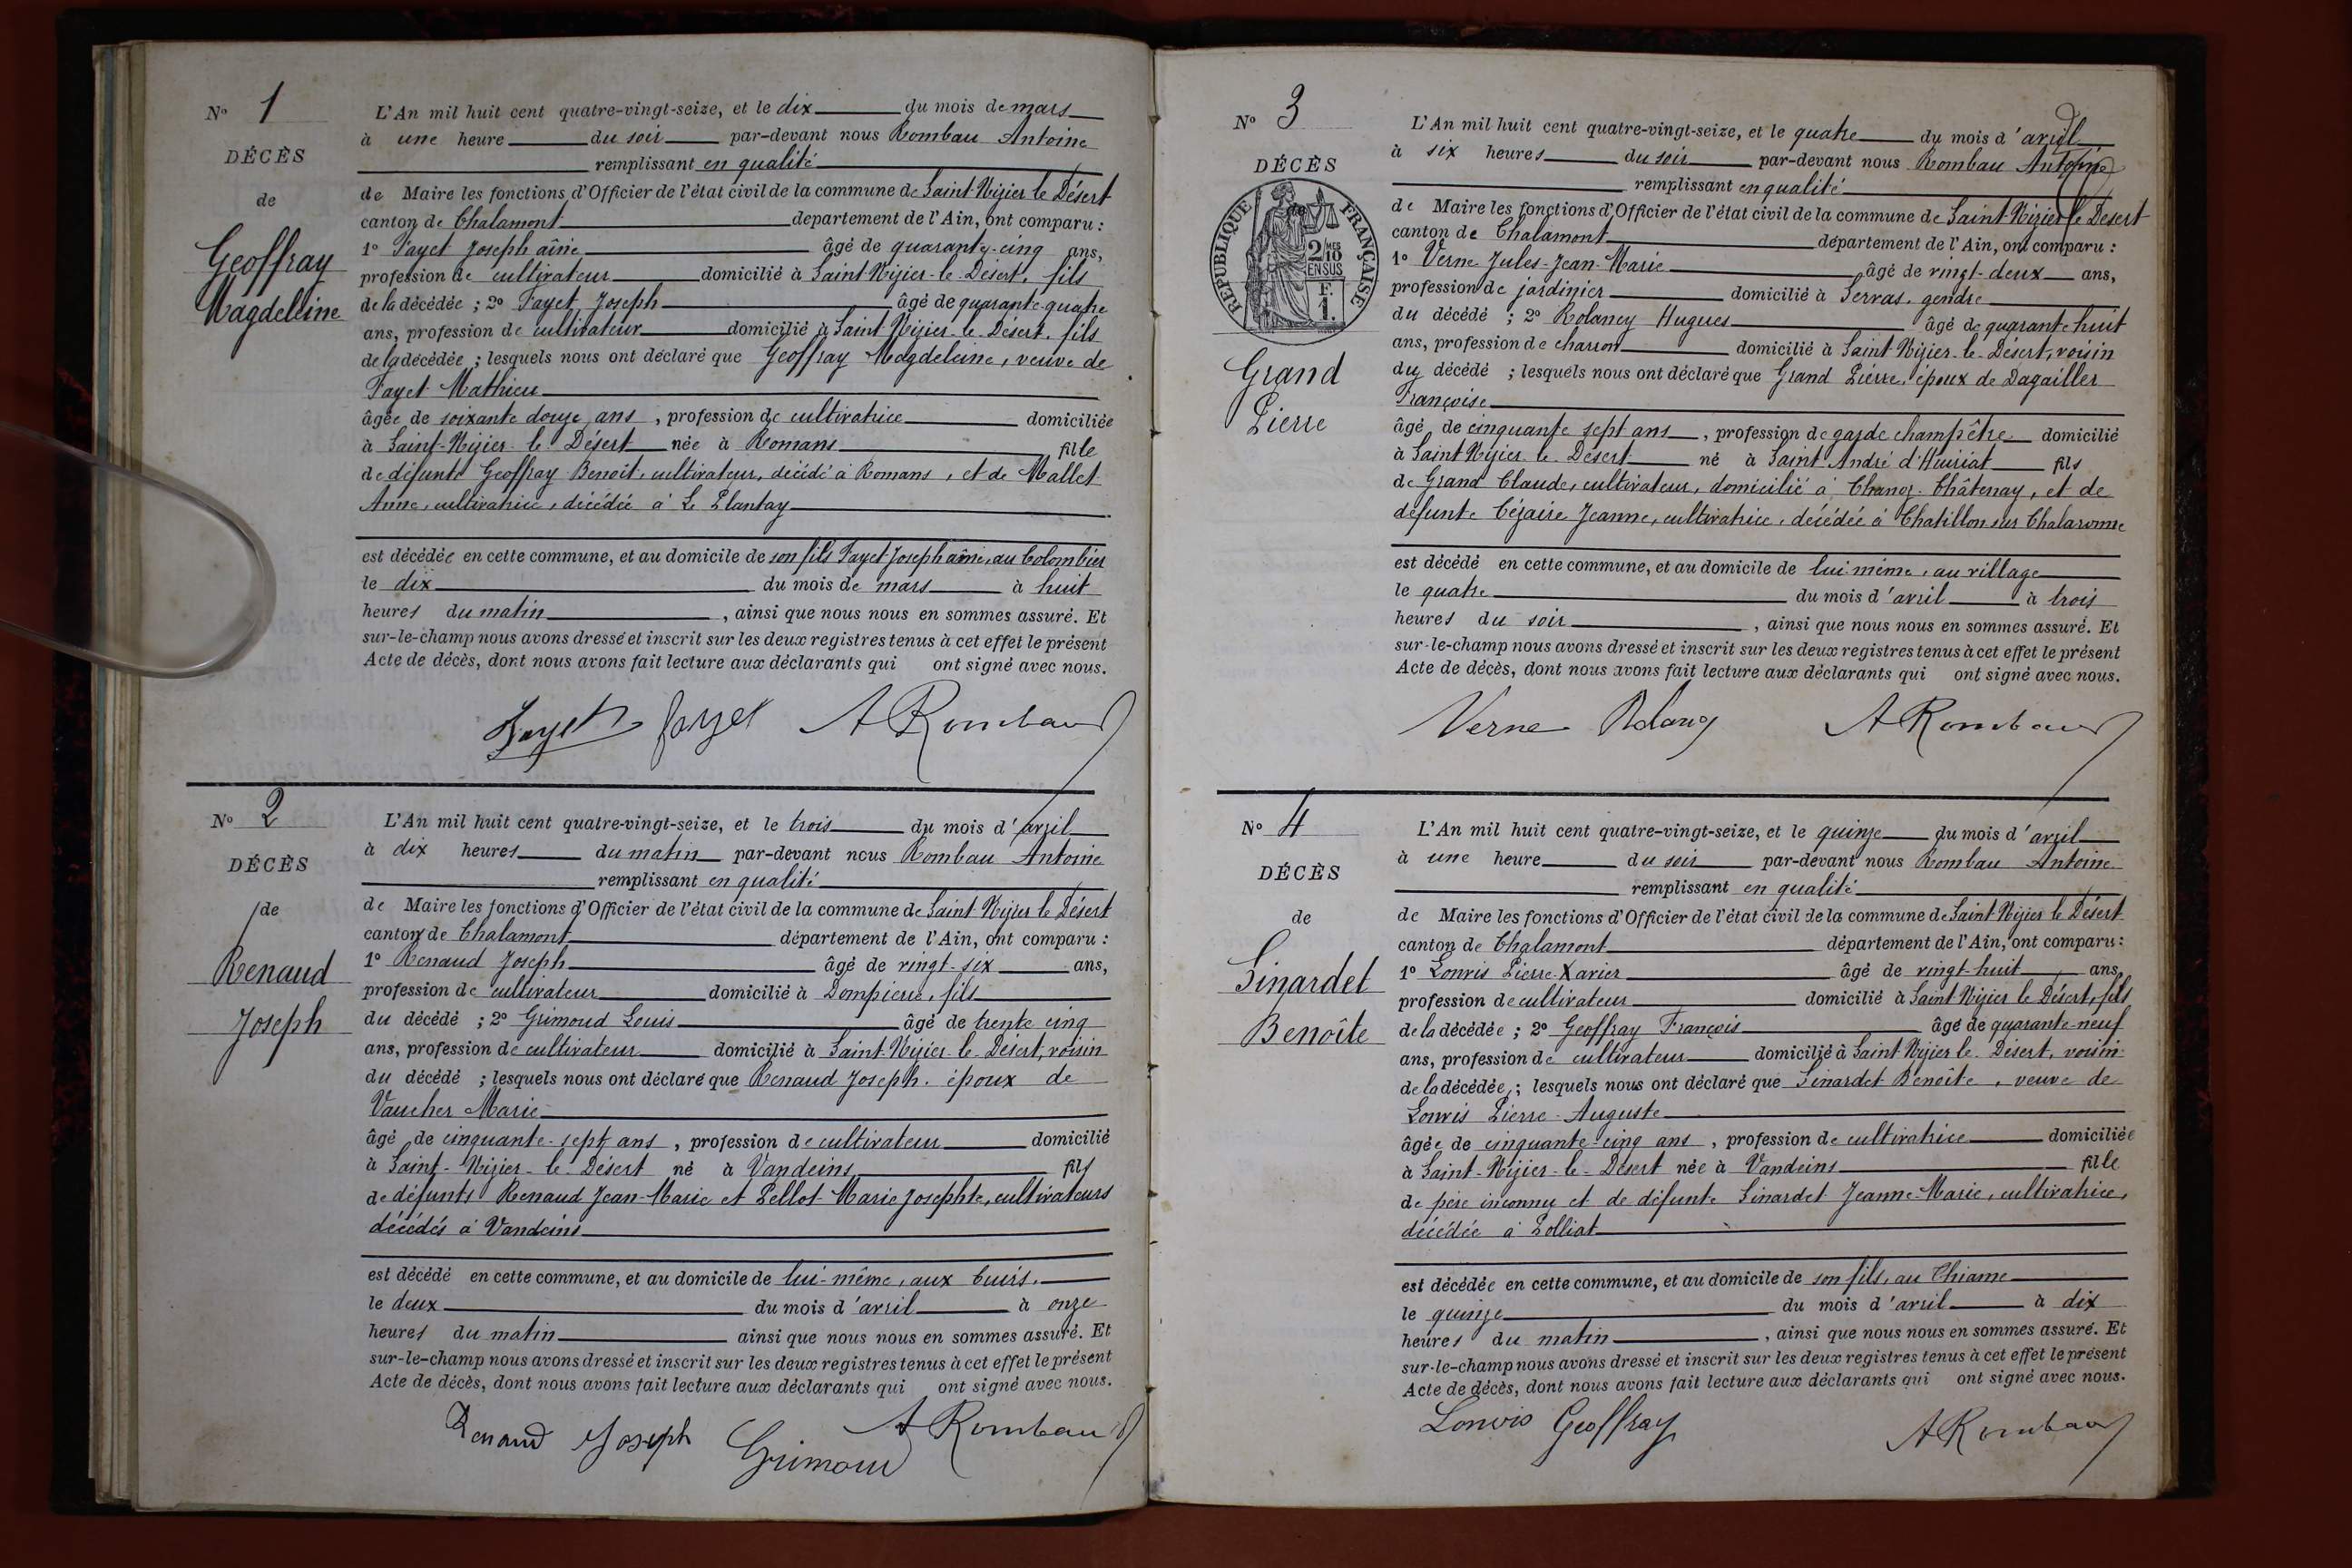 N° 1
DÉCÈS
de
Geoffray
Magdeleine
L'An mil huit cent quatre-vingt-seize, et le dix du mois de mars
à une heure du soir par-devant nous Rombau Antoine
remplissant en qualité
de Maire les fonctions d'Officier de l'état civil de la commune de Saint Nizier le Désert
canton de Chalamont departement de l'Ain, ont comparu :
1° Fayet Joseph aîné âgé de quarante-cinq ans,
profession de cultivateur domicilié à Saint Nizier-le-Désert, fils
de la décédée ; 2° Fayet Joseph âgé de quarante-quatre
ans, profession de cultivateur domicilié à Saint Nizier-le-Désert, fils
de la décédée ; lesquels nous ont déclaré que Geoffray Magdeleine, veuve de
Fayet Mathieu
âgée de soixante douze ans , profession de cultivatrice domiciliée
à Saint-Nizier-le Désert née à Romans fille
de défunts Geoffray Benoit, cultivateur, décédé à Romans, et de Mallet
Anne, cultivatrice, décédée à Le Plantay
est décédée en cette commune, et au domicile de son fils Fayet Joseph aîné, au Colombier
le dix du mois de mars à huit
heures du matin , ainsi que nous nous en sommes assuré. Et
sur-le-champ nous avons dressé et inscrit sur les deux registres tenus à cet effet le présent
Acte de décès, dont nous avons fait lecture aux déclarants qui ont signé avec nous.
Fayet fayet A Rombau
N° 2
DÉCÈS
de
Renaud
Joseph
L'An mil huit cent quatre-vingt-seize, et le trois du mois d'avril
à dix heures du matin par-devant nous Rombau Antoine
remplissant en qualité
de Maire les fonctions d'Officier de l'état civil de la commune de Saint Nizier le Désert
canton de Chalamont département de l'Ain, ont comparu :
1° Renaud Joseph âgé de vingt-six ans,
profession de cultivateur domicilié à Dompierre, fils
du décédé ; 2° Grimoud Louis âgé de trente cinq
ans, profession de cultivateur domicilié à Saint-Nizier-le-Désert, voisin
du décédé ; lesquels nous ont déclaré que Renaud Joseph, époux de
Vaucher Marie
âgé de cinquante-sept ans , profession de cultivateur domicilié
à Saint-Nizier-le-Désert né à Vandeins fils
de défunts Renaud Jean-Marie et Pellot Marie Josephte, cultivateurs
décédés à Vandeins
est décédé en cette commune, et au domicile de lui-même, aux Cuirs.
le deux du mois d'avril à onze
heures du matin ainsi que nous nous en sommes assuré. Et
sur-le-champ nous avons dressé et inscrit sur les deux registres tenus à cet effet le présent
Acte de décès, dont nous avons fait lecture aux déclarants qui ont signé avec nous.
Renaud Joseph Grimoud A Rombau
N° 3
DÉCÈS
RÉPUBLIQUE FRANÇAISE
2/10
MES
EN SUS
F.
1.
Grand
Pierre
L'An mil huit cent quatre-vingt-seize, et le quatre du mois d'avril
à six heures du soir par-devant nous Rombau Antoine
remplissant en qualité
de Maire les fonctions d'Officier de l'état civil de la commune de Saint-Nizier le Désert
canton de Chalamont département de l'Ain, ont comparu :
1° Verne Jules-Jean-Marie âgé de vingt-deux ans,
profession de jardinier domicilié à Servas, gendre
du décédé ; 2° Rolancy Hugues âgé de quarante huit
ans, profession de charron domicilié à Saint Nizier-le-Désert, voisin
du décédé ; lesquels nous ont déclaré que Grand Pierre, époux de Dagailler
Françoise
âgé de cinquante sept ans , profession de garde champêtre domicilié
à Saint Nizier-le-Désert né à Saint André d'Huiriat fils
de Grand Claude, cultivateur, domicilié à Chanoz-Châtenay, et de
défunte Céjaire Jeanne, cultivatrice, décédée à Chatillon sur Chalaronne
est décédé en cette commune, et au domicile de lui même, au village
le quatre du mois d'avril à trois
heures du soir , ainsi que nous nous en sommes assuré. Et
sur-le-champ nous avons dressé et inscrit sur les deux registres tenus à cet effet le présent
Acte de décès, dont nous avons fait lecture aux déclarants qui ont signé avec nous.
Verne A Rombau
N° 4
DÉCÈS
de
Pinardet
Benoîte
L'An mil huit cent quatre-vingt-seize, et le quinze du mois d'avril
à une heure du soir par-devant nous Rombau Antoine
remplissant en qualité
de Maire les fonctions d'Officier de l'état civil de la commune de Saint-Nizier le Désert
canton de Chalamont département de l'Ain, ont comparu :
1° Lonvis Pierre-Xavier âgé de vingt-huit ans,
profession de cultivateur domicilié à Saint Nizier le Désert, fils
de la décédée ; 2° Geoffray François âgé de quarante-neuf
ans, profession de cultivateur domicilié à Saint Nizier le-Désert, voisin
de la décédée ; lesquels nous ont déclaré que Pinardet Benoîte, veuve de
Lonvis Pierre-Auguste
âgée de cinquante cinq ans , profession de cultivatrice domiciliée
à Saint-Nizier-le-Désert née à Vandeins fille
de père inconnu et de défunte Pinardet Jeanne-Marie, cultivatrice,
décédée à Polliat
est décédée en cette commune, et au domicile de son fils, au Chiame
le quinze du mois d'avril à dix
heures du matin , ainsi que nous nous en sommes assuré. Et
sur-le-champ nous avons dressé et inscrit sur les deux registres tenus à cet effet le présent
Acte de décès, dont nous avons fait lecture aux déclarants qui ont signé avec nous.
Lonvis Geoffray A Rombau